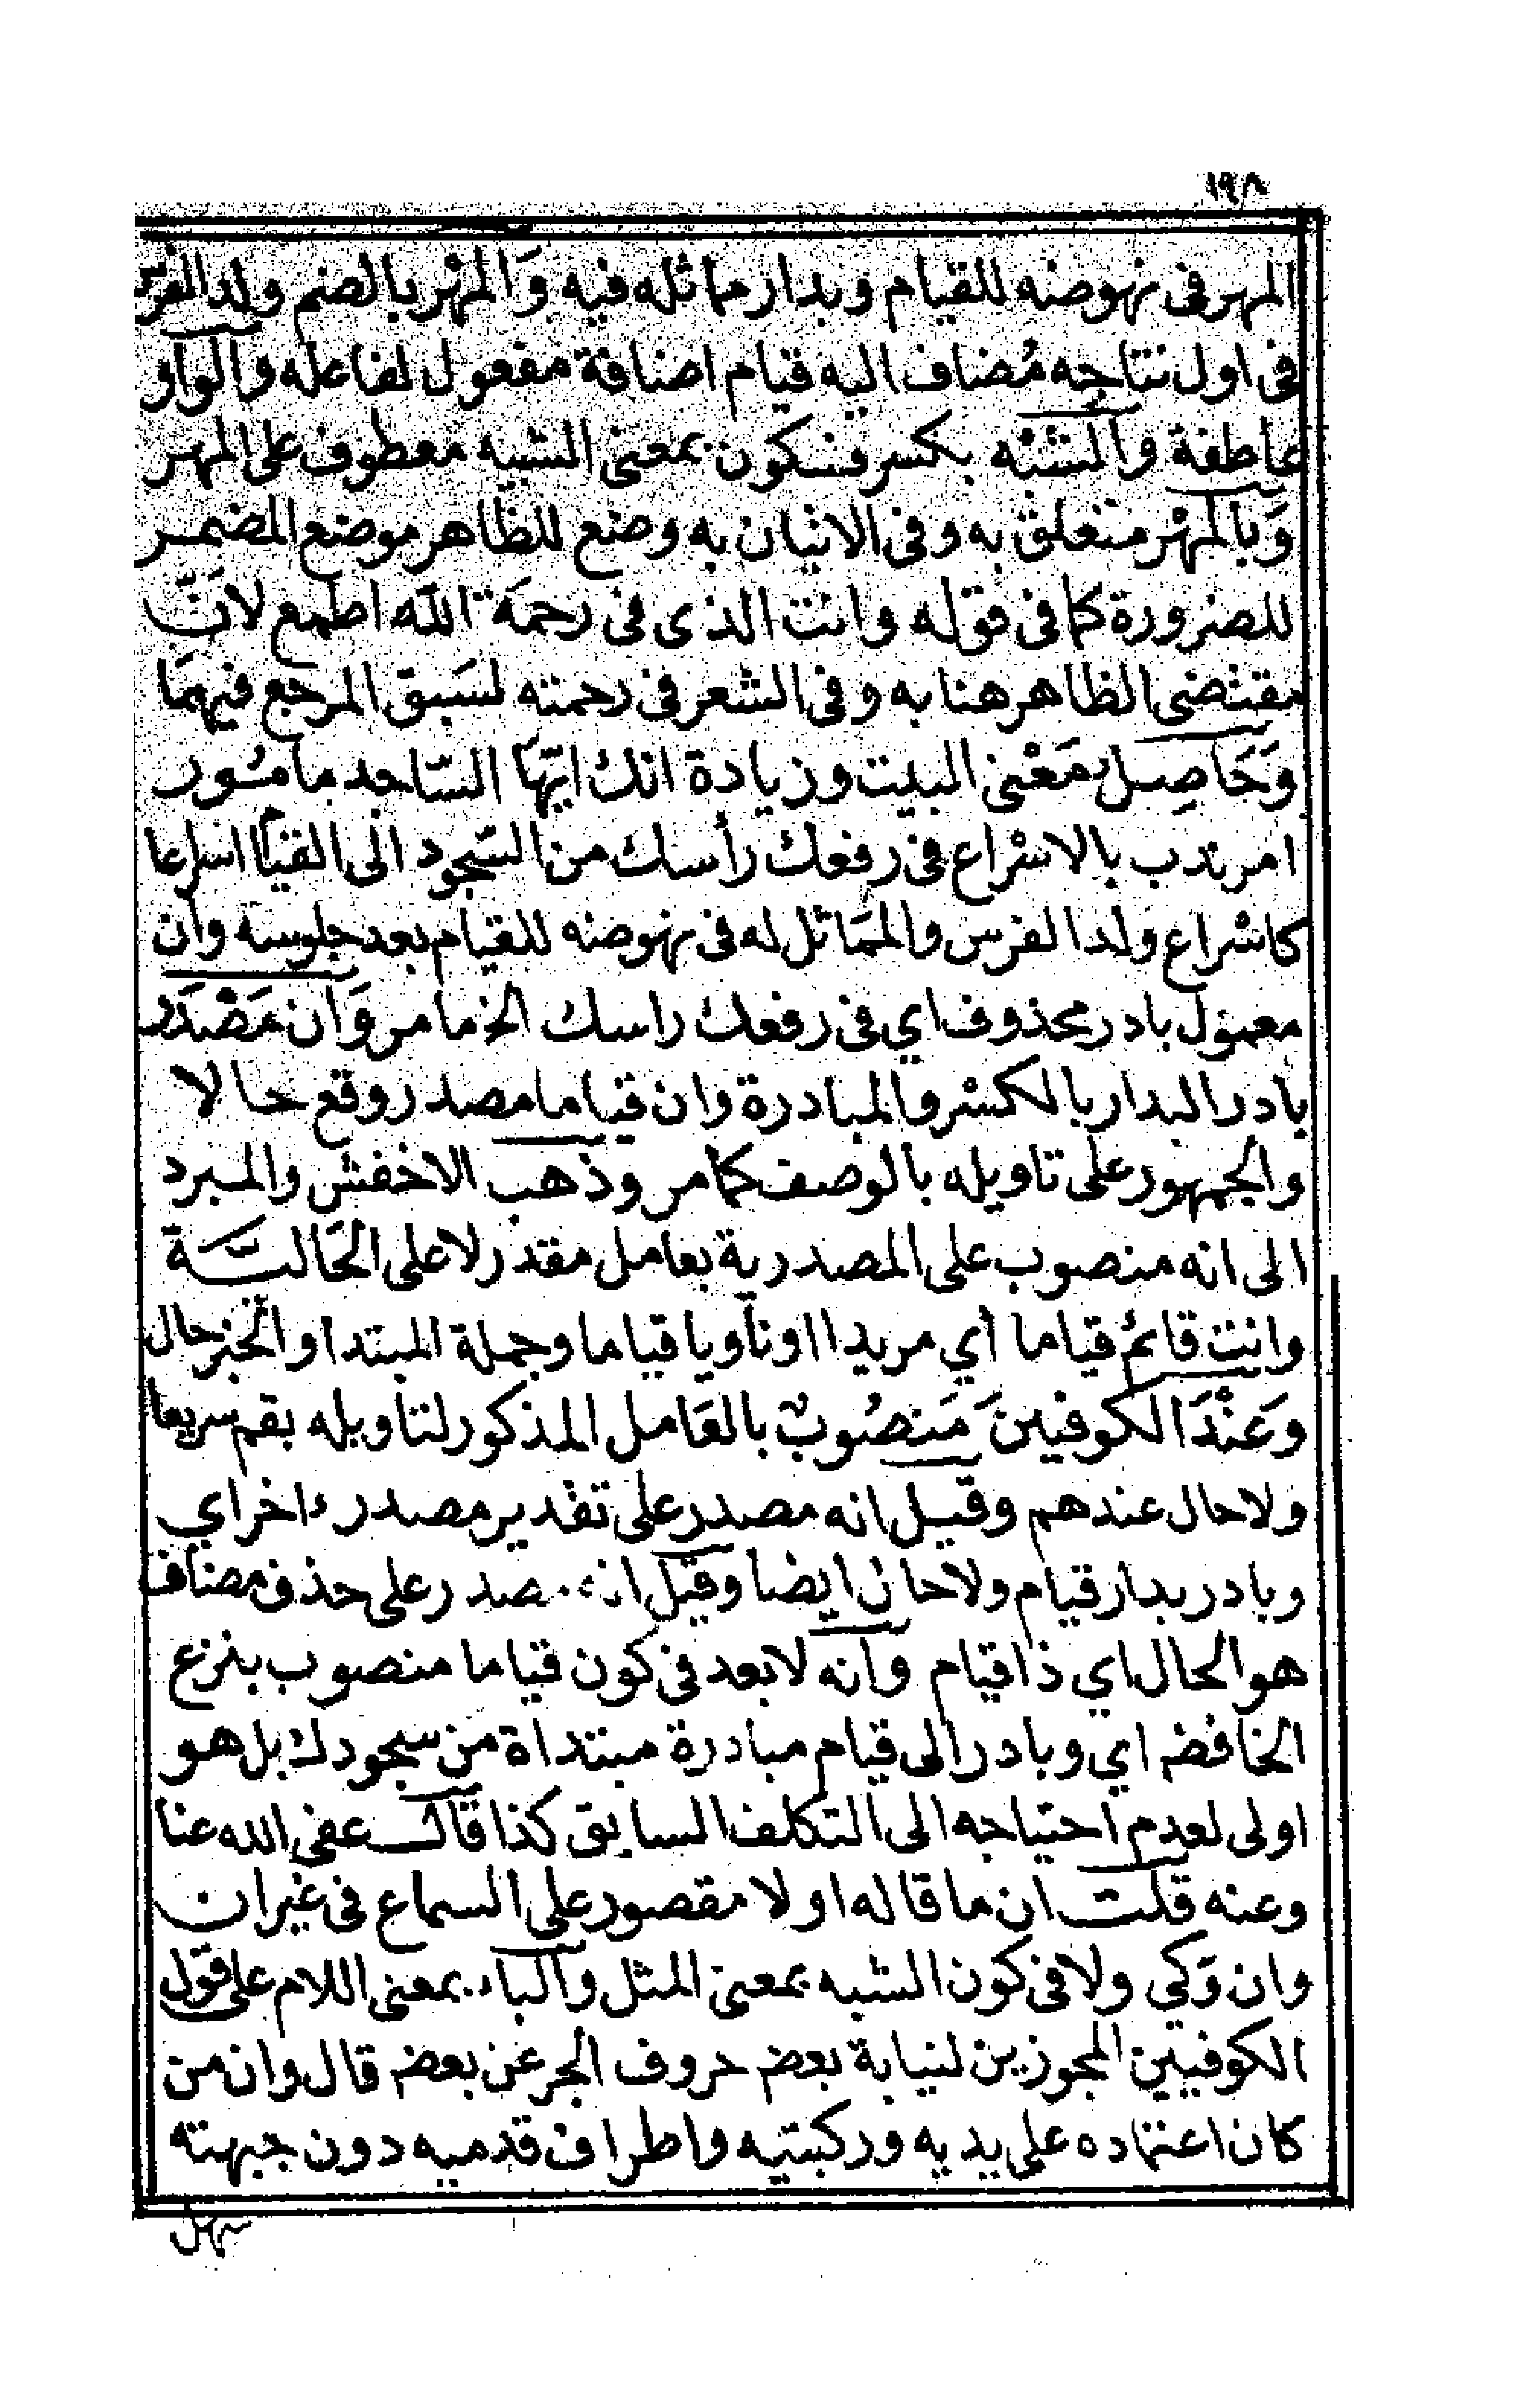 ١٩٨
المهر في نهوضه للقيام وبدار مماثله فيه وَالمُهْر بالضم ولد الفرس
في اول نتاجه مُضاف اليه قيام اضافة مفعول لفاعله والواو
عاطفة والشبْه بكسر فسكون بمعنى الشبيه معطوف على المهر
وَبالمُهْر متعلق به وفي الاتيان به وضع للظاهر موضع المضمر
للضرورة كما في قوله وانت الذي في رحمَة الله اطمع لانّ
مقتضى الظاهر هنا به وفي الشعر في رحمته لسَبق المرجع فيهمَا
وَحَاصِل مَعْنى البيت وزيادة انك ايّهَا السّاجد مامُور
امر ندب بالاسْراع في رفعك رأسك من السّجود الى القيام اسراعا
كاسْراع ولد الفرس والممَاثل له في نهوضه للقيام بعد جلوسه وان
معمول بادر محذوف اي في رفعك راسك الخ ما مر وَان مَصْدَر
بادر البدار بالكسْر والمبادرة وان قياما مصدر وقع حالا
والجمهور على تاويله بالوصف كما مر وذهب الاخفش والمبرد
الى انه منصوب على المصدرية بعامل مقدر لا على الحَاليَّة
وانت قائم قياما أي مريدا او ناويا قياما وجملة المبتدا والخبر حال
وَعنْدَ الكوفيينَ مَنصُوبٌ بالعَامل المذكور لتاويله بقم سريعا
ولا حال عندهم وقيل انه مصدر على تقدير مصدر ءاخر اي
وبادر بدار قيام ولا حال ايضا وقيل انه مصدر على حذف مضاف
هو الحال اي ذا قيام وانه لا بعد في كون قياما منصوب بنزع
الخافض اي وبادر الى قيام مبادرة مبتداة من سجودك بل هو
اولى لعدم احتياجه الى التكلف السابق كذا قال عفى الله عنا
وعنه قلت ان ما قاله اولا مقصور على السماع في غير ان
وان وَكي ولا في كون الشبه بمعنى المثل والباء بمعنى اللام على قول
الكوفيين المجوزين لنيابة بعض حروف الجر عن بعض قال وان من
كان اعتماده على يديه وركبتيه واطراف قدميه دون جبهته
سهل